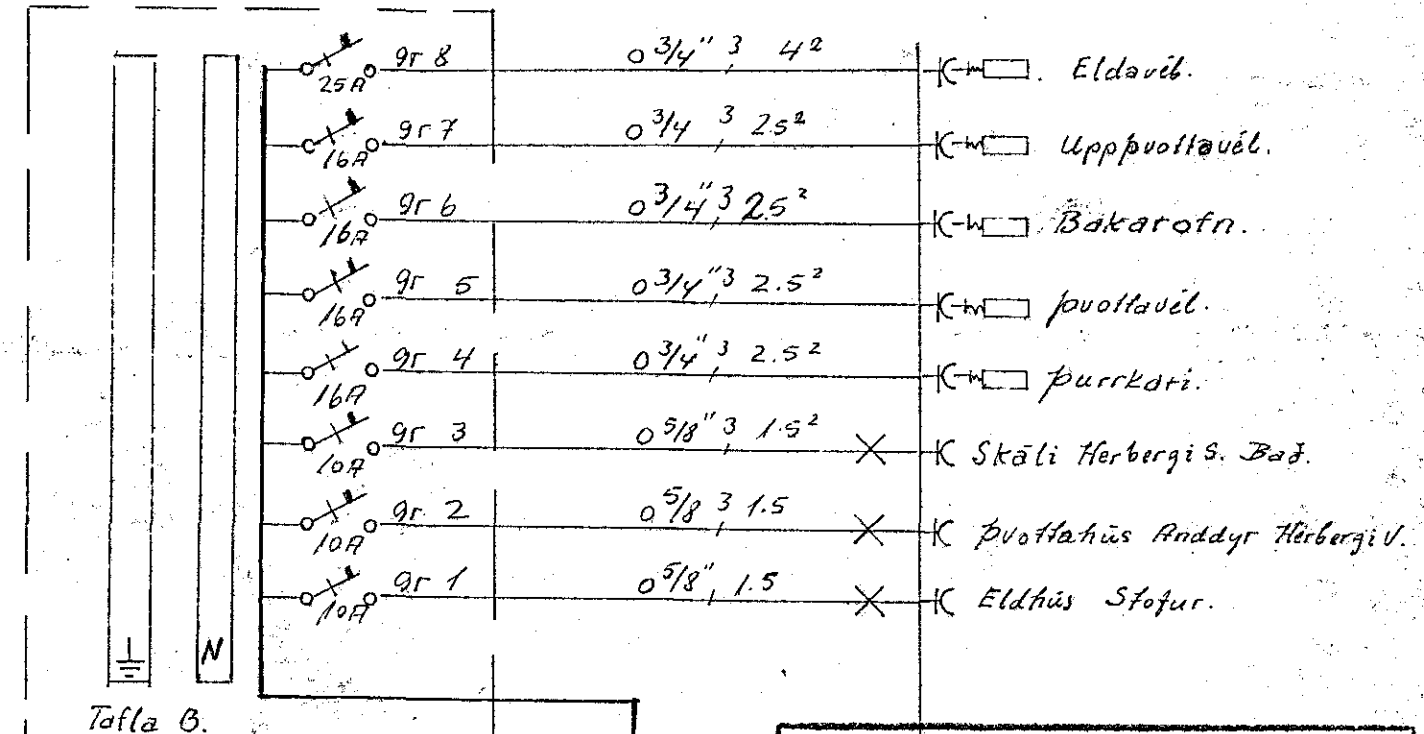 gr 8 o 3/4" 3 4² Eldavél.
25A
gr 7 o 3/4 3 2.5² Uppþvottavél.
16A
gr 6 o 3/4" 3 2.5² Bakarofn.
16A
gr 5 o 3/4" 3 2.5² þvottavél.
16A
gr 4 o 3/4" 3 2.5² þurrkari.
16A
gr 3 o 5/8" 3 1.5² Skáli Herbergi S. Bað.
10A
gr. 2 o 5/8 3 1.5 þvottahús Anddyr Herbergi V.
10A
gr 1 o 5/8" 1.5 Eldhús Stofur.
10A
N
Tafla B.